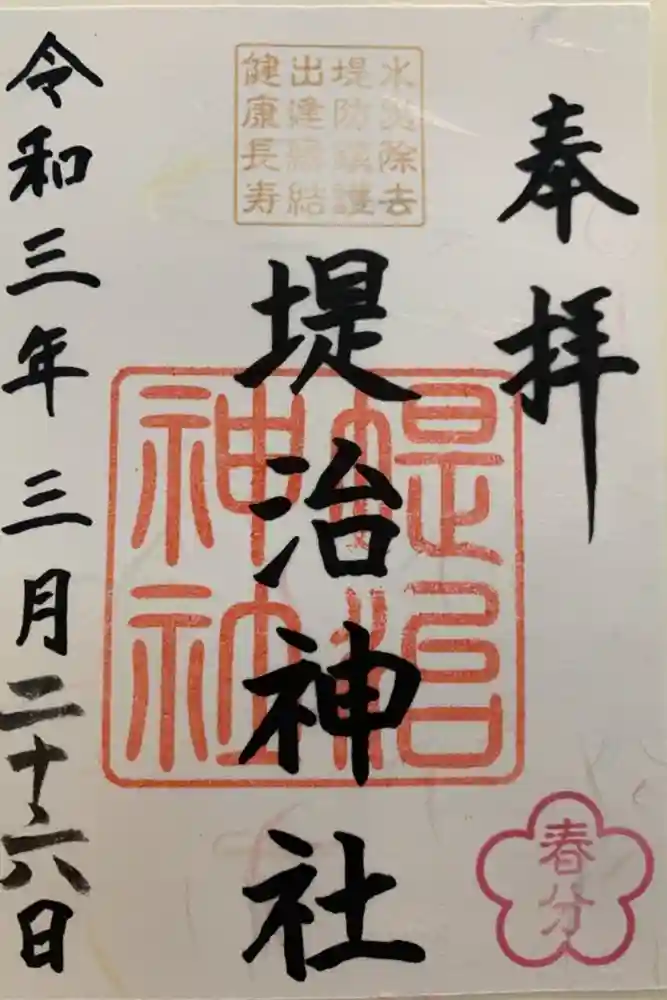 奉拝
水災除去
堤防鎮護
出達縁結
健康長寿
堤治神社
堤治
神社
春分
令和三年三月二十六日